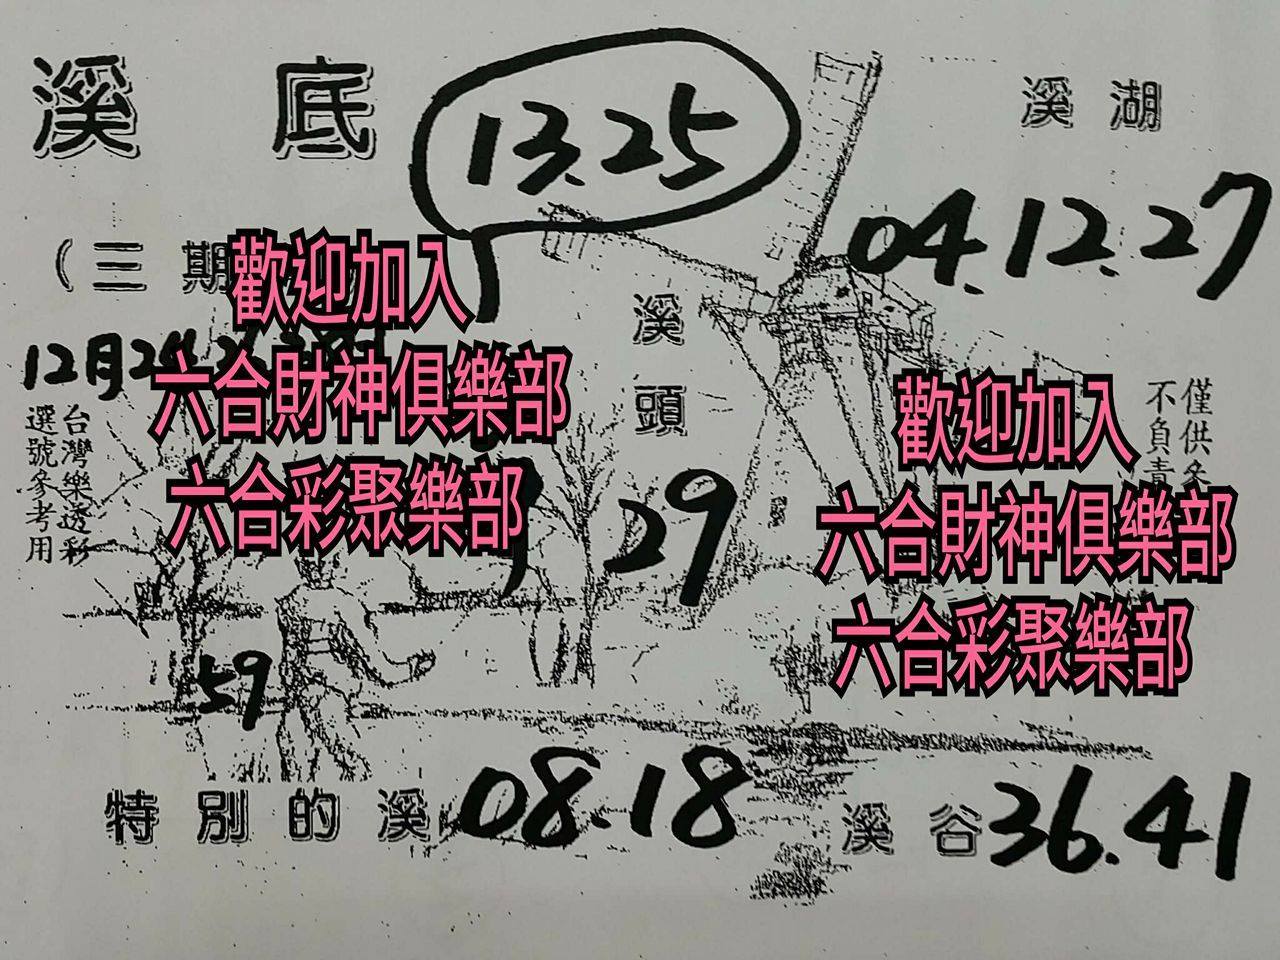 溪底
13.25
溪湖
04.12.27
(三期
12月24
溪頭
29
台灣樂透彩
選號參考用
僅供參
不負責
歡迎加入
六合財神俱樂部
六合彩聚樂部
歡迎加入
六合財神俱樂部
六合彩聚樂部
59
特別的溪
08.18
溪谷
36.41